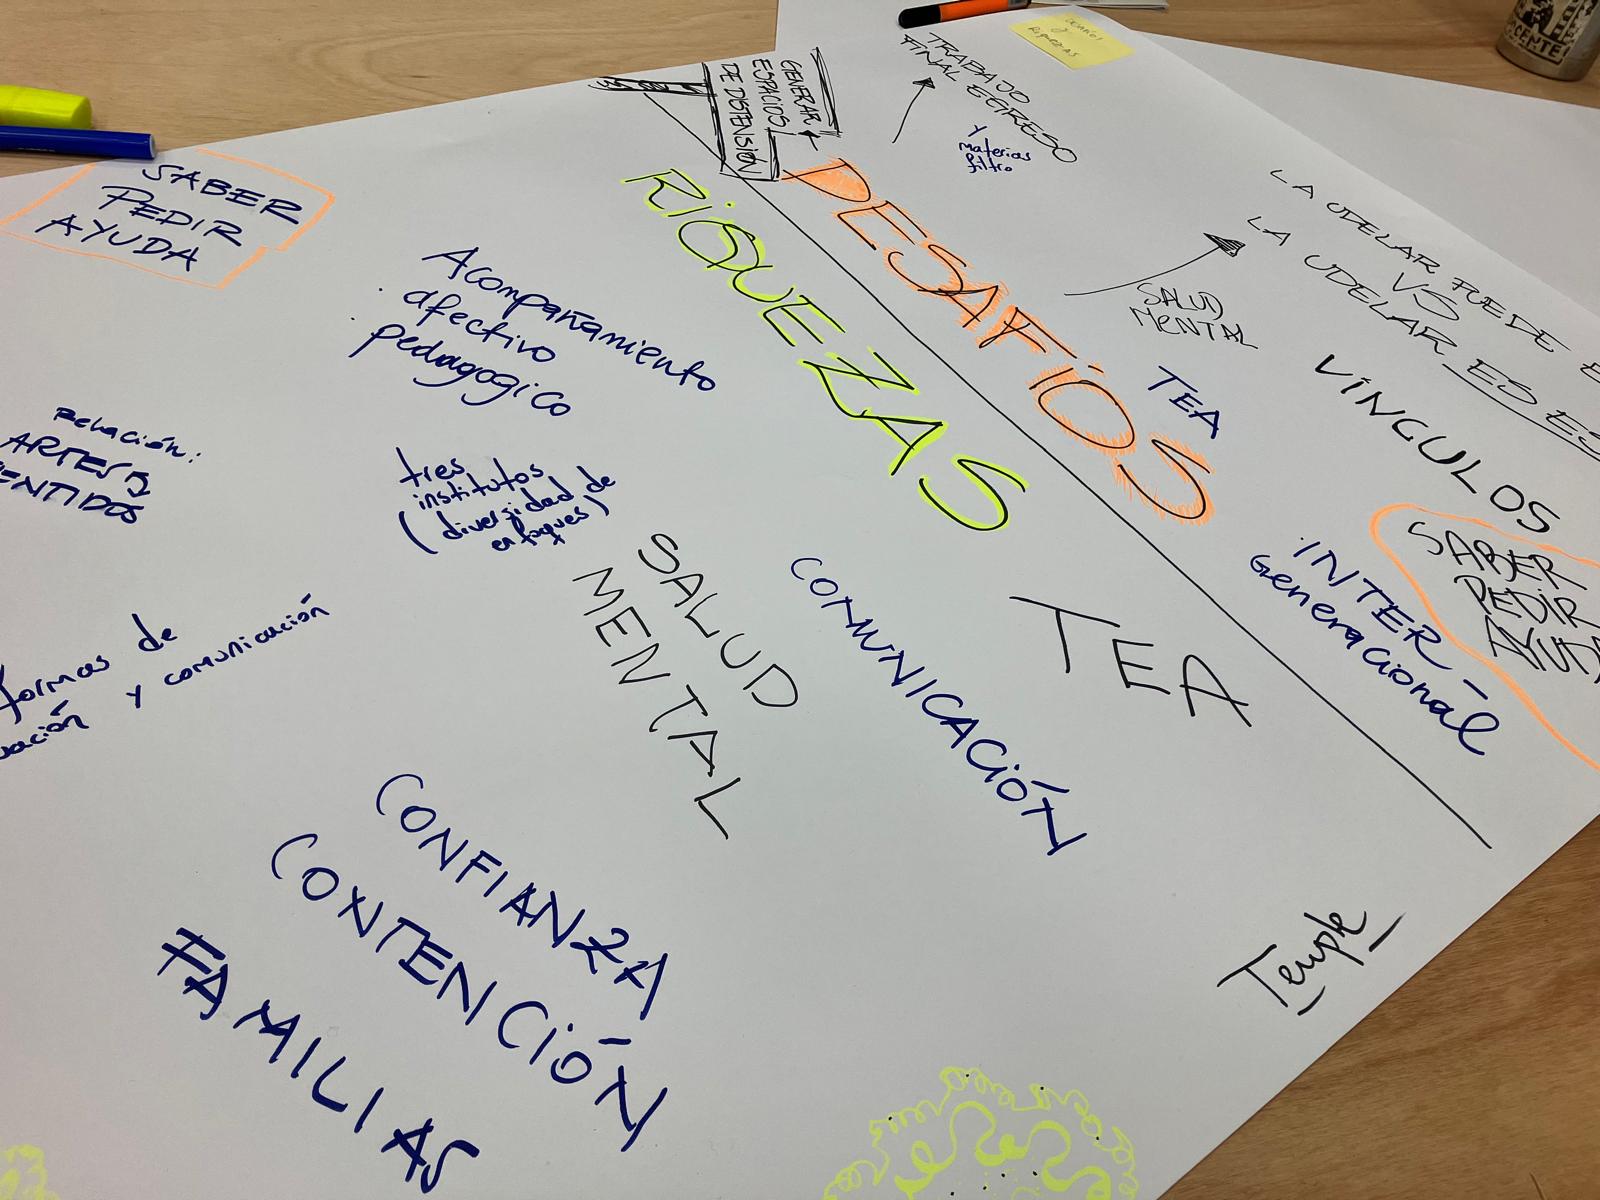 DESAFÍOS
Y
RIQUEZAS
TRABAJO
FINAL EGRESO
Y
materias
filtro
GENERAR
ESPACIOS
DE DISTENSIÓN
DESAFÍOS
LA UDELAR PUEDE
VS
LA UDELAR ES
SALUD
MENTAL
TEA
VÍNCULOS
SABER
PEDIR
AYUD
INTER-
Generacional
RIQUEZAS
SABER
PEDIR
AYUDA
Acompañamiento
afectivo
pedagogico
Relación:
ARTES y
ENTIDOS
tres
institutos
(diversidad de
enfoques)
SALUD
MENTAL
COMUNICACIÓN
TEA
formas de
y comunicación
CONFIANZA
CONTENCIÓN
FAMILIAS
Temple
OCENTE